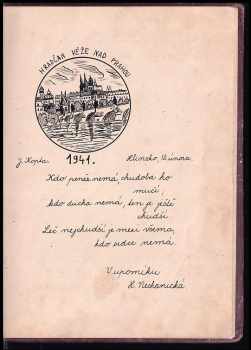 HRADČAN VĚŽE NAD PRAHOU
J. Kopta. 1941. Hlinsko, 12. února.
Kdo peněz nemá, chudoba ho
mučí,
kdo ducha nemá, ten je ještě
chudší.
Leč nejchudší je mezi všema,
kdo srdce nemá.
Vzpomínku
H. Nechanická